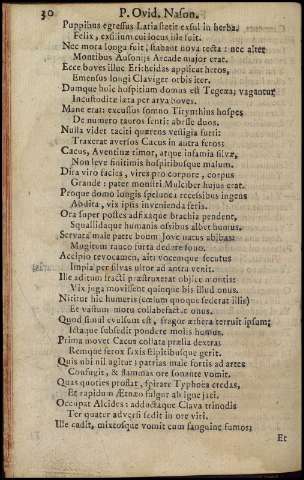 30 P. Ovid. Nason.
Puppibus egressus Latia stetit exsul in herba.
Felix, exsilium cui locus ille fuit.
Nec mora longa fuit, stabant nova tecta: nec alter
Montibus Ausoniis Arcade major erat.
Ecce boves illuc Erytheidas applicat heros,
Emensus longi Claviger orbis iter.
Dumque huic hospitium domus est Tegeæa; vagantur
Incustoditæ lata per arva boves.
Mane erat: excussus somno Tirynthius hospes
De numero tauros sentit abesse duos.
Nulla videt taciti quærens vestigia furti:
Traxerat aversos Cacus in antra feros:
Cacus, Aventinæ timor, atque infamia silvæ,
Non leve finitimis hospitibusque malum.
Dira viro facies, vires pro corpore, corpus
Grande: pater monstri Mulciber hujus erat.
Proque domo longis spelunca recessibus ingens
Abdita, vix ipsis invenienda feris.
Ora super postes adfixaque brachia pendent,
Squallidaque humanis ossibus albet humus.
Servata male parte boum Jove natus abibat:
Mugitum rauco furta dedere sono.
Accipio revocamen, ait: vocemque secutus
Impia per silvas ultor ad antra venit.
Ille aditum fracti præstruxerat objice montis:
Vix juga movissent quinque bis illud onus.
Nititur hic humeris (cœlum quoque sederat illis)
Et vastum motu collabefactat onus.
Quod simul evulsum est, fragor æthera terruit ipsum;
Ictaque subsedit pondere molis humus.
Prima movet Cacus collata prælia dextra:
Remque ferox saxis stipitibusque gerit.
Quis ubi nil agitur; patrias male fortis ad artes
Confugit, & flammas ore sonante vomit.
Quas quoties proflat, spirare Typhoëa credas,
Et rapidum Ætnæo fulgur ab igne jaci.
Occupat Alcides: adductaque Clava trinodis
Ter quater adversi sedit in ore viri.
Ille cadit, mixtosque vomit cum sanguine fumos;
Et